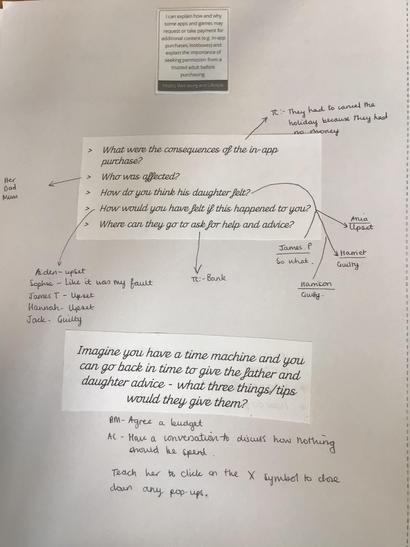 I can explain how and why
some apps and games may
request or take payment for
additional content (e.g. in-app
purchases, lootboxes) and
explain the importance of
seeking permission from a
trusted adult before
purchasing
Health, Well-being and Lifestyle
π:- They had to cancel the
holiday because they had
no money
> What were the consequences of the in-app
purchase?
> Who was affected?
> How do you think his daughter felt?
> How would you have felt if this happened to you?
> Where can they go to ask for help and advice?
Her
Dad
Mum
Upset
James. P
So what.
Harriet
Guilty
Guilty.
π:- Bank
Aiden - upset
Sophie - Like it was my fault
James T - Upset
Hannah - Upset
Jack - Guilty
Imagine you have a time machine and you
can go back in time to give the father and
daughter advice - what three things/tips
would they give them?
- Agree a budget
AC - Have a conversation to discuss how nothing
should be spent.
Teach her to click on the X symbol to close
down any pop-ups.